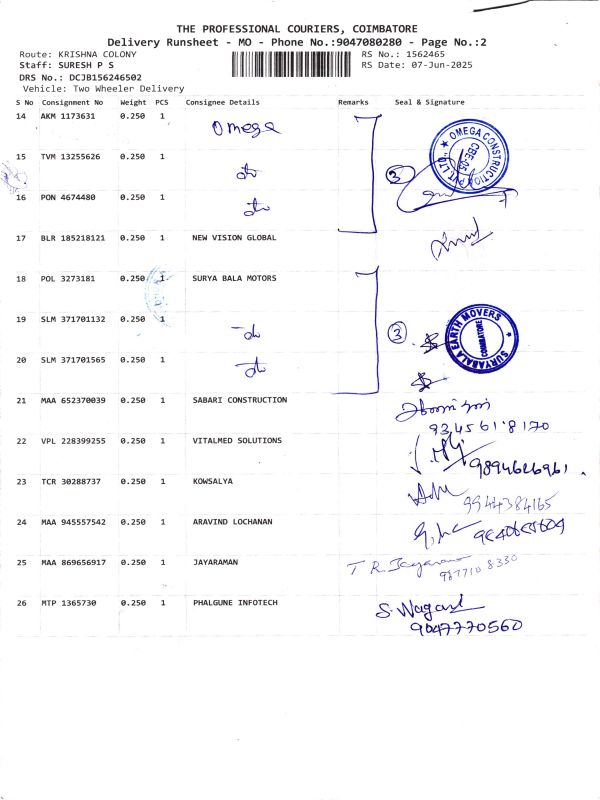 THE PROFESSIONAL COURIERS, COIMBATORE
Delivery Runsheet - MO - Phone No.:9047080280 - Page No.:2
Route: KRISHNA COLONY
RS No.: 1562465
Staff: SURESH P S
RS Date: 07-Jun-2025
DRS No.: DCJB156246502
Vehicle: Two Wheeler Delivery
S No Consignment No Weight PCS Consignee Details Remarks Seal & Signature
14 AKM 1173631 0.250 1 Omega
15 TVM 13255626 0.250 1 do
OMEGA CONSTRUCTION PVT LTD
3
16 PON 4674480 0.250 1 do
17 BLR 185218121 0.250 1 NEW VISION GLOBAL
18 POL 3273181 0.250 1 SURYA BALA MOTORS
19 SLM 371701132 0.250 1 do
3
SURYABALA EARTH MOVERS
COIMBATORE
20 SLM 371701565 0.250 1 do
21 MAA 652370039 0.250 1 SABARI CONSTRUCTION
9345618170
22 VPL 228399255 0.250 1 VITALMED SOLUTIONS
9894626961
23 TCR 30288737 0.250 1 KOWSALYA
9944384165
24 MAA 945557542 0.250 1 ARAVIND LOCHANAN
25 MAA 869656917 0.250 1 JAYARAMAN T R Jayaraman
26 MTP 1365730 0.250 1 PHALGUNE INFOTECH
9047770560